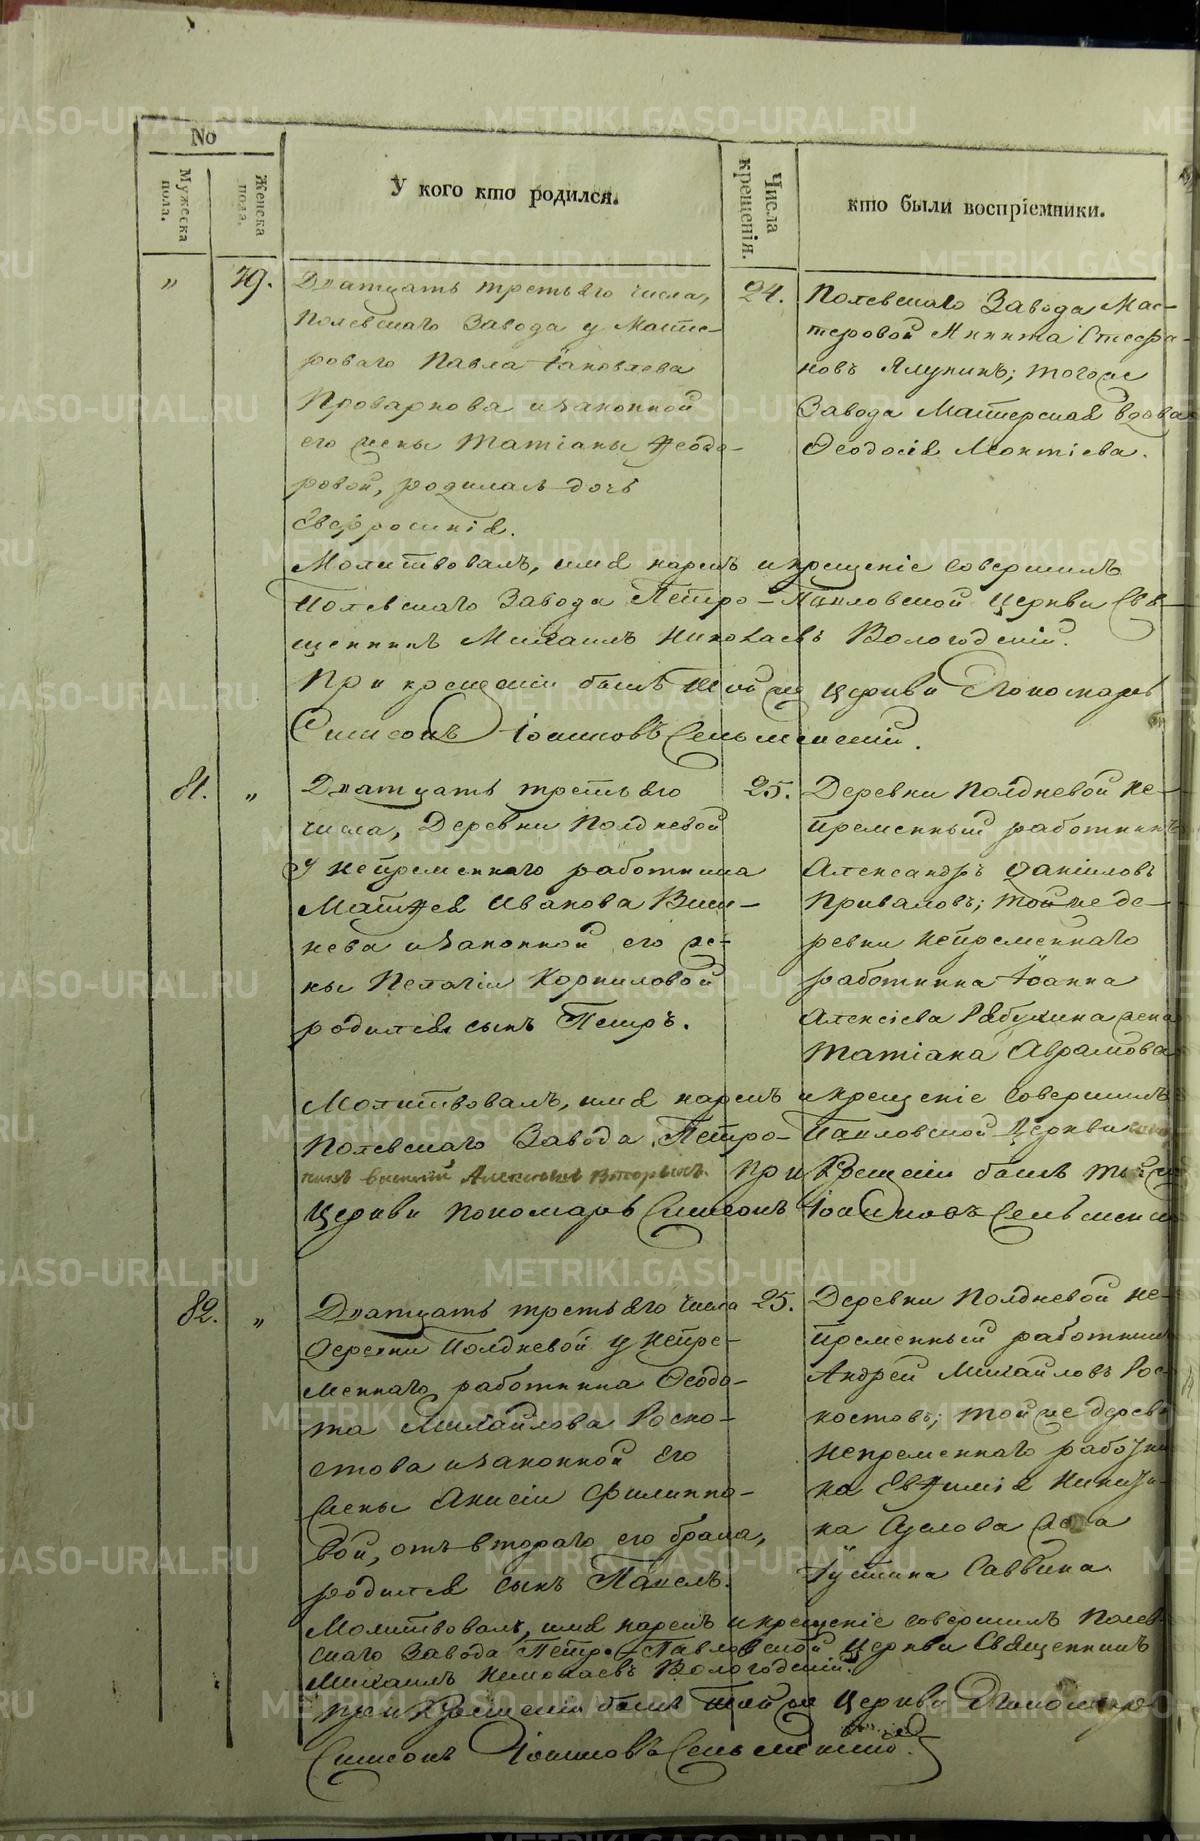 No
Мужеска пола.
Женска пола.
У кого кто родился.
Числа крещенія.
кто были воспріемники.
" 79.
Дватцать третьяго числа,
Полевскаго Завода у Масте-
роваго Павла Іаковлева
и законной
его жены Татіаны Ѳеодо-
ровой, родилась дочь
Евфросинія.
24.
Полевскаго Завода Мас-
теровой Никита Стефа-
новъ Ялунинъ; тогоже
Завода Мастерская вдова
Ѳеодосія Леонтіева.
Молитвовалъ, имя нарекъ и крещеніе совершилъ
Полевскаго Завода Петро-Павловской Церкви Свя-
щенникъ Михаилъ Николаевъ Вологодскій.
При крещеніи былъ той же Церкви Пономарь
Симеонъ Іоанновъ
81. "
Дватцать третьяго
числа, Деревни Полдневой
у непременнаго работника
Матѳея Иванова
и законной его же-
ны Пелагіи Корниловой
родился сынъ Петръ.
25.
Деревни Полдневой не-
пременный работникъ
Александръ Даниловъ
Приваловъ; той же де-
ревни непременнаго
работника Іоанна
Алексіева жена
Татіана Аврамова
Молитвовалъ, имя нарекъ и крещеніе совершилъ
Полевскаго Завода Петро-Павловской Церкви
При крещеніи былъ той же
Церкви Пономарь Симеонъ Іоанновъ
82. "
Дватцать третьяго числа
Деревни Полдневой у непре-
меннаго работника Ѳеодо-
та Михайлова Роско-
стова и законной его
жены Анисіи Филиппо-
вой, отъ втораго его брака,
родился сынъ Павелъ.
25.
Деревни Полдневой не-
пременный работник
Андрей Михайловъ Рос-
костовъ; той же дерев
непременнаго работни
ка Евѳимія
жена
Іустина Саввина
Молитвовалъ, имя нарекъ и крещеніе совершилъ Полев-
скаго Завода Петро-Павловской Церкви Священникъ
Михаилъ Николаевъ Вологодскій.
При крещеніи былъ той же Церкви Пономарь
Симеонъ Іоанновъ
METRIKI.GASO-URAL.RU